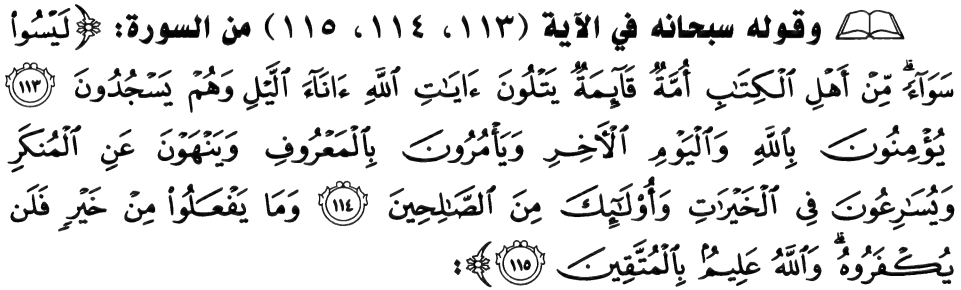 وقوله سبحانه في الآية (١١٣، ١١٤، ١١٥) من السورة: ﴿لَيْسُوا۟
سَوَآءًۗ مِّنْ أَهْلِ ٱلْكِتَٰبِ أُمَّةٌ قَآئِمَةٌ يَتْلُونَ ءَايَٰتِ ٱللَّهِ ءَانَآءَ ٱلَّيْلِ وَهُمْ يَسْجُدُونَ ١١٣
يُؤْمِنُونَ بِٱللَّهِ وَٱلْيَوْمِ ٱلْءَاخِرِ وَيَأْمُرُونَ بِٱلْمَعْرُوفِ وَيَنْهَوْنَ عَنِ ٱلْمُنكَرِ
وَيُسَٰرِعُونَ فِى ٱلْخَيْرَٰتِ وَأُو۟لَٰٓئِكَ مِنَ ٱلصَّٰلِحِينَ ١١٤ وَمَا يَفْعَلُوا۟ مِنْ خَيْرٍ فَلَن
يُكْفَرُوهُۗ وَٱللَّهُ عَلِيمٌۢ بِٱلْمُتَّقِينَ ١١٥﴾: